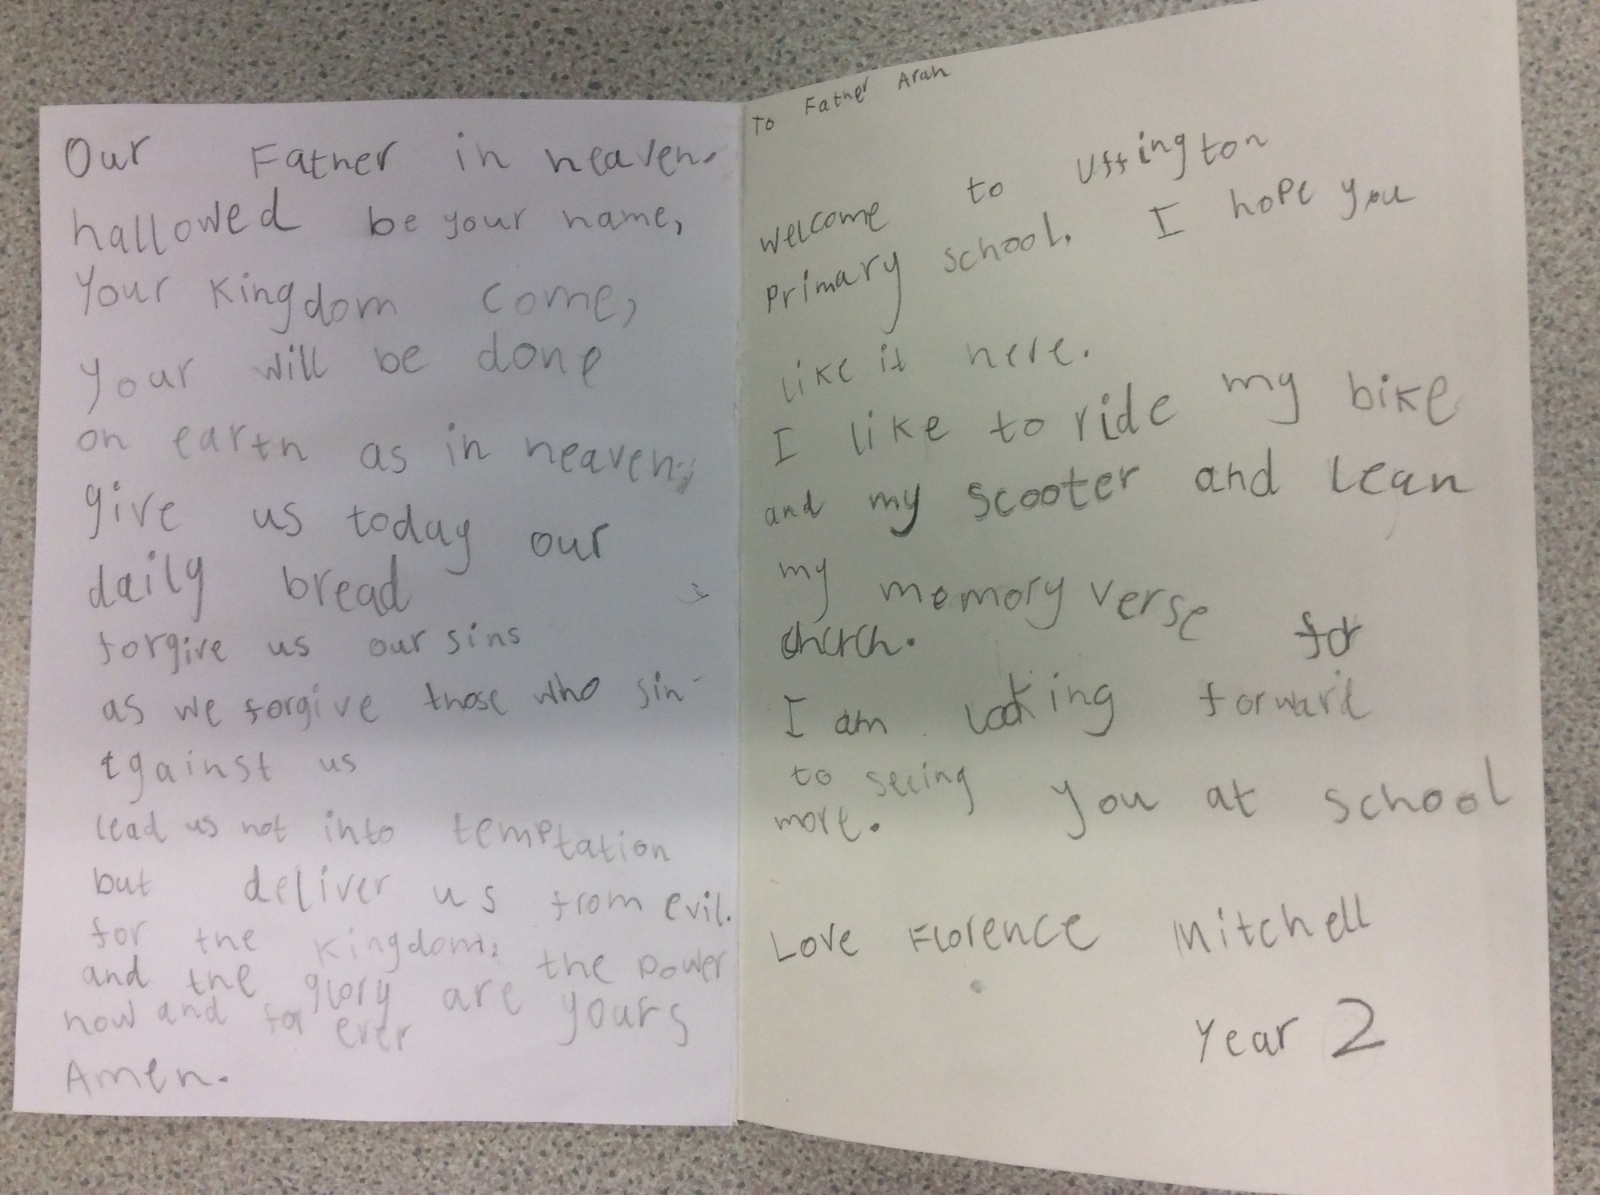 Our Father in heaven.
hallowed be your name,
Your Kingdom come,
your will be done
on earth as in heaven,
give us today our
daily bread
forgive us our sins
as we forgive those who sin
against us
lead us not into temptation
but deliver us from evil.
for the Kingdom, the power
and the glory are yours
now and for ever
Amen.
To Father Arah
welcome to Uffington
Primary school. I hope you
like it here.
I like to ride my bike
and my scooter and lean
my memory verse for
church.
I am looking forward
to seeing you at school
more.
Love Florence Mitchell
Year 2